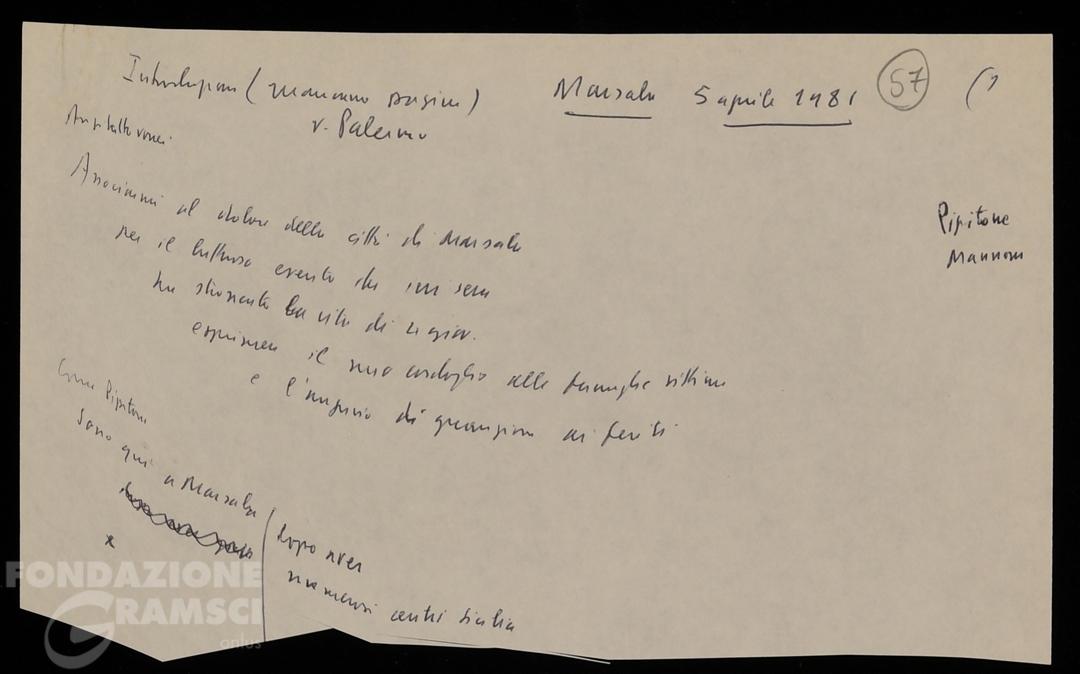 Introduzione (mancano pagine) Marsala 5 aprile 1981 57 (1
v. Palermo
Associarmi al dolore della città di Marsala
per il luttuoso evento che ieri sera
ha stroncato la vita di giov.
esprimere il mio cordoglio alle famiglie vittime
e l'augurio di guarigione ai feriti
Pipitone
Mannoni
Come Pipitone
Sono qui a Marsala
dopo aver
numerosi centri Sicilia
x
FONDAZIONE
GRAMSCI
onlus